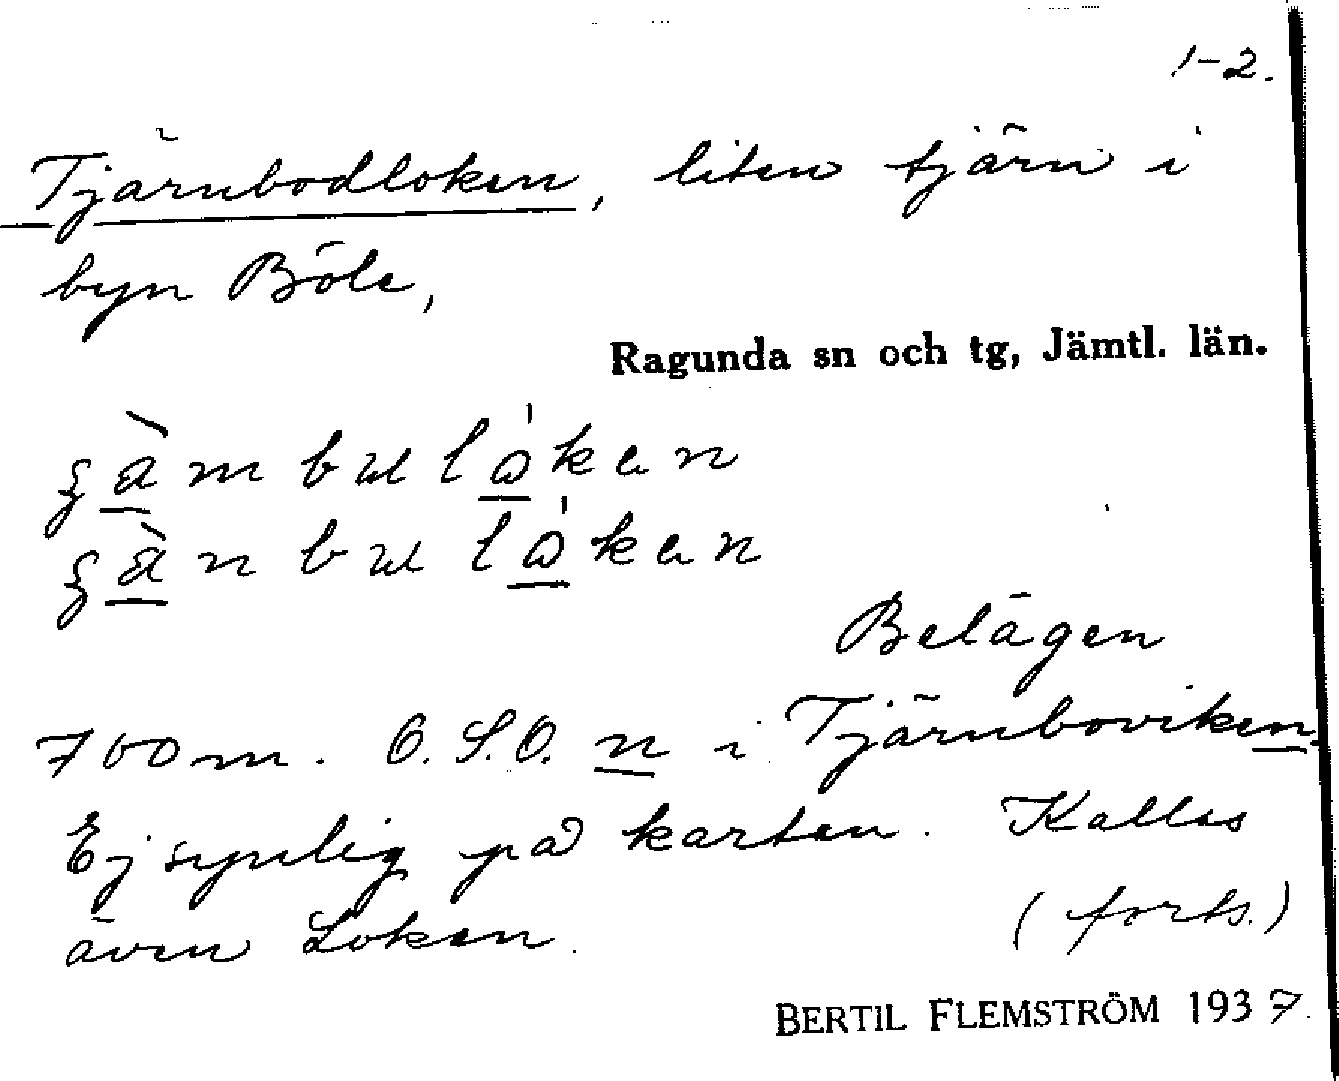 1-2.
Tjärnbodloken, liten tjärn i
byn Böle,
Ragunda sn och tg, Jämtl. län.
Belägen
700 m. O.S.O. n i Tjärnboviken.
Ej synlig på kartan. Kallas
även Loken.
(forts.)
BERTIL FLEMSTRÖM 1937.